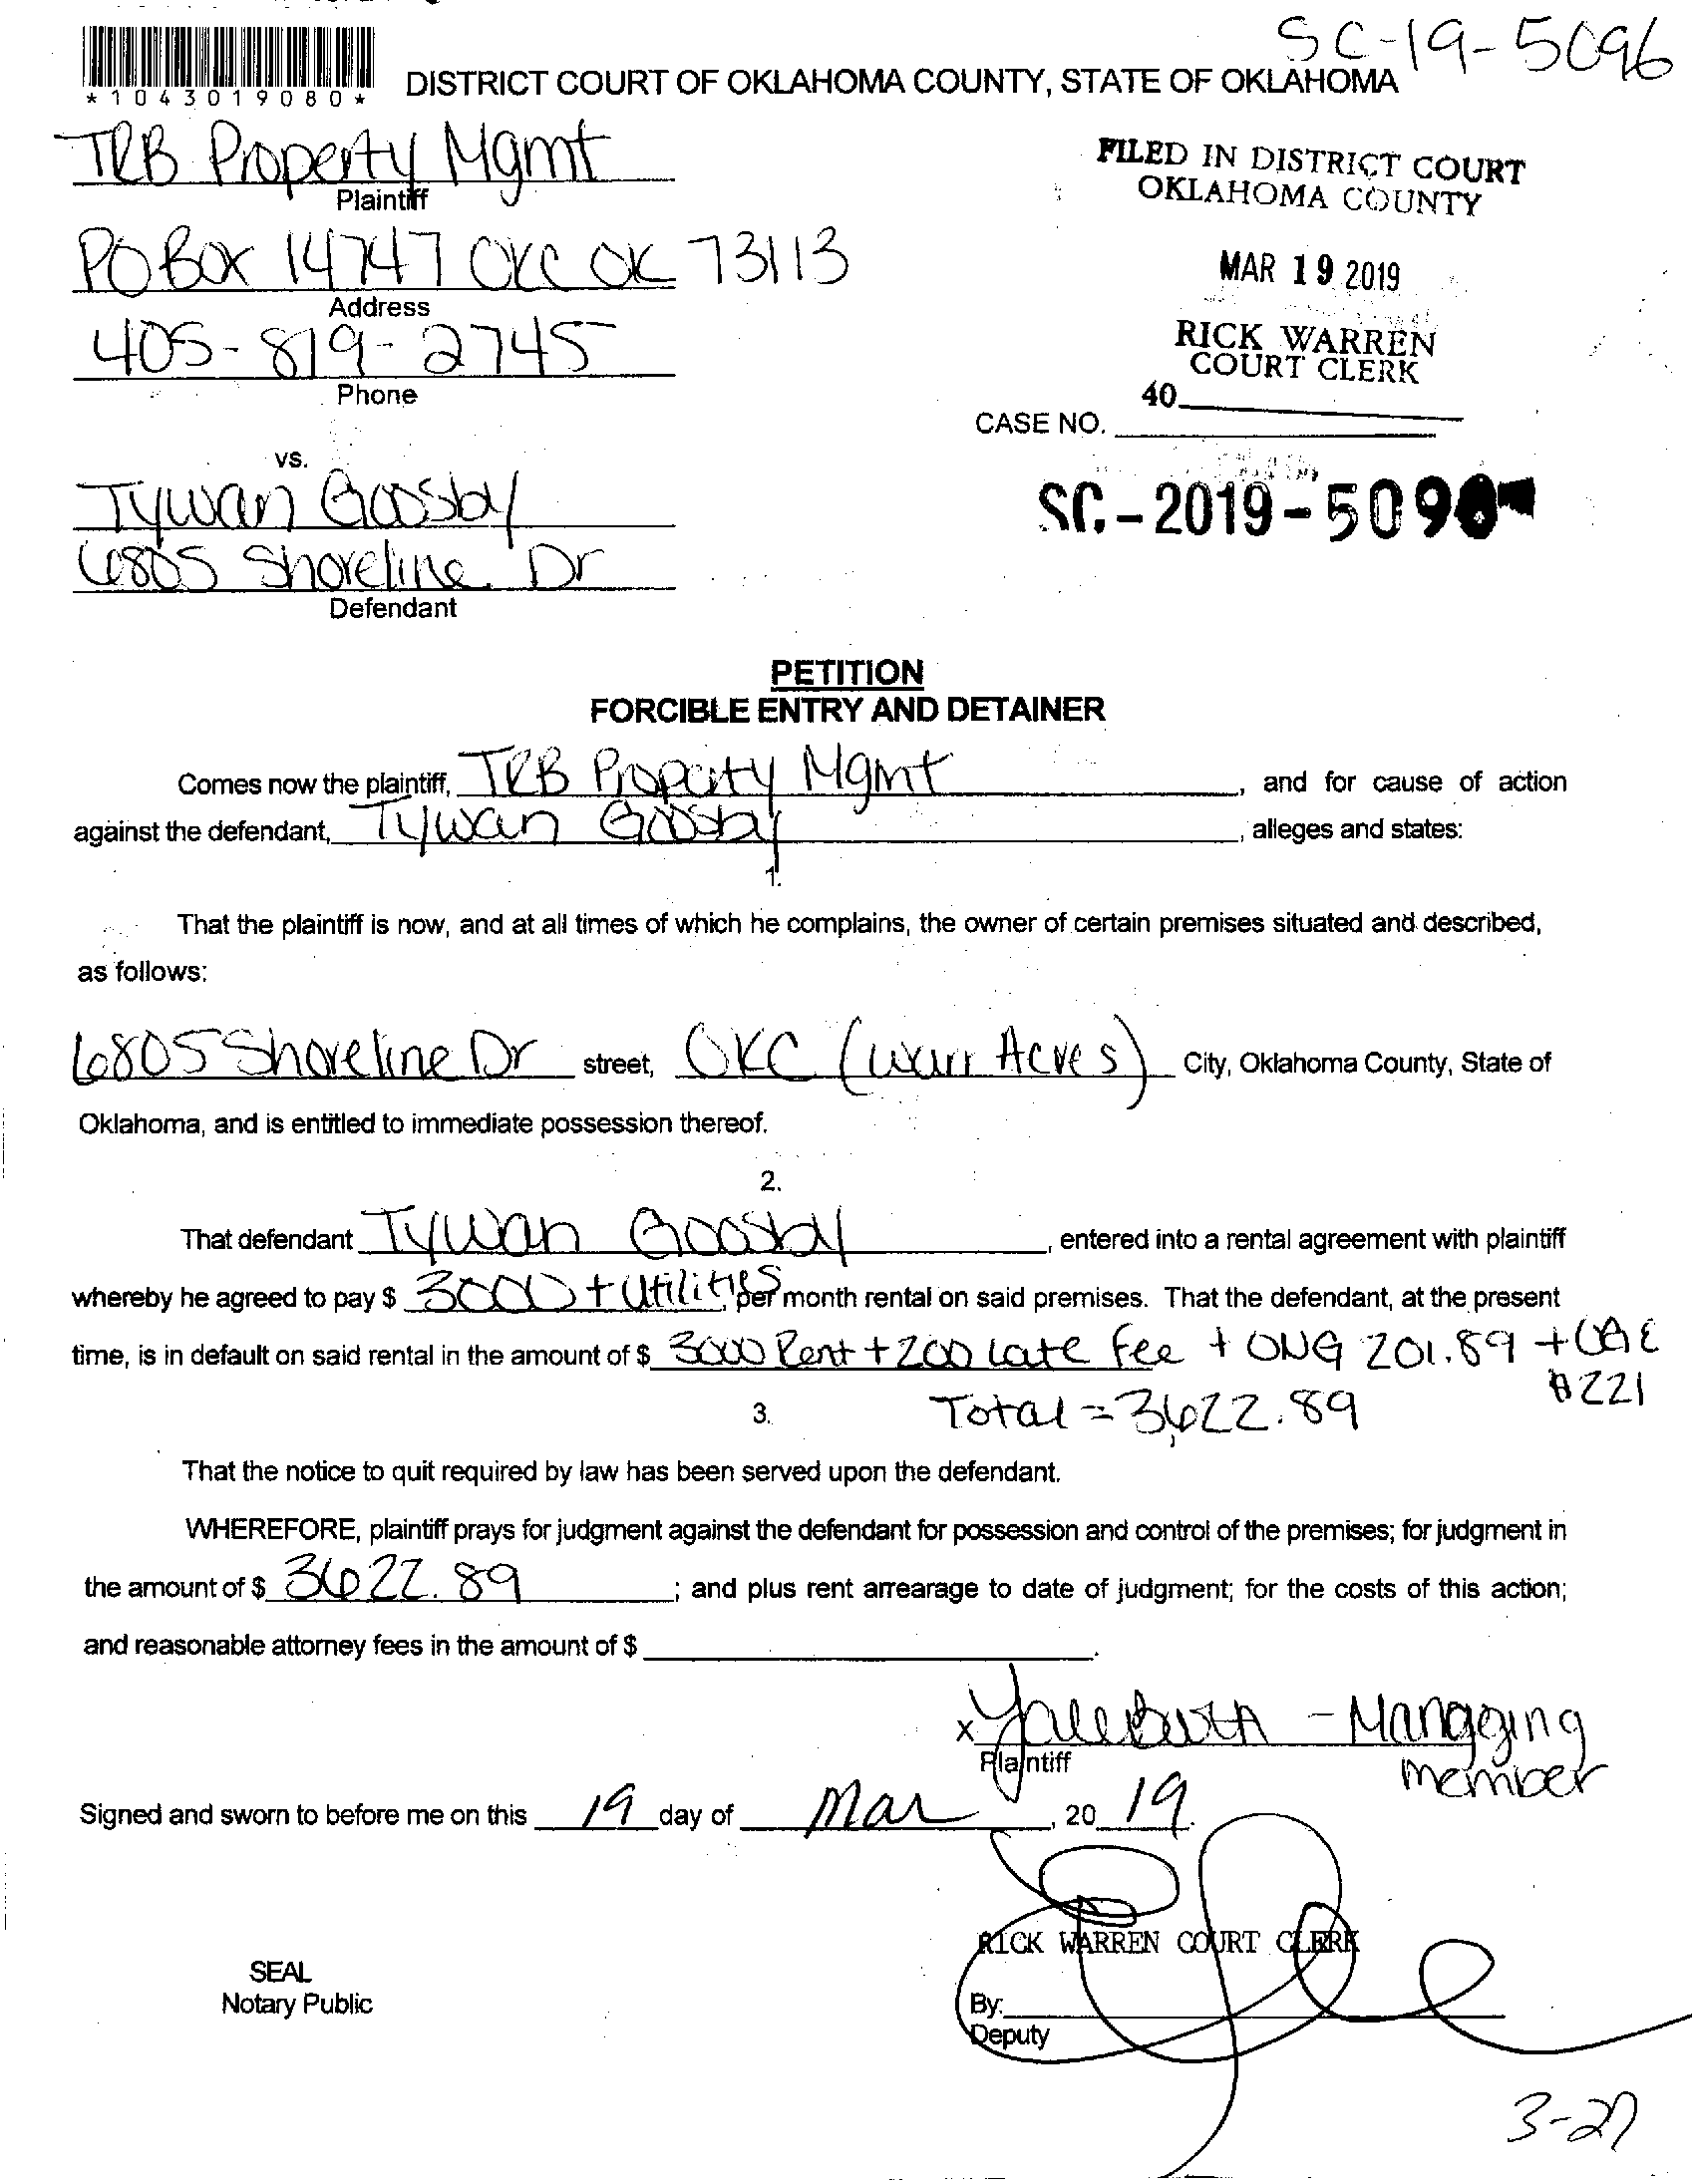 SC-19-5096
*1043019080*
DISTRICT COURT OF OKLAHOMA COUNTY, STATE OF OKLAHOMA
TRB Property Mgmt
Plaintiff
FILED IN DISTRICT COURT
OKLAHOMA COUNTY
PO Box 14747 OKC OK 73113
Address
MAR 19 2019
405-819-2745
Phone
RICK WARREN
COURT CLERK
40
CASE NO.
vs.
Tywan Goosby
SC-2019-509
6805 Shoreline Dr
Defendant
PETITION
FORCIBLE ENTRY AND DETAINER
Comes now the plaintiff, TRB Property Mgmt, and for cause of action
against the defendant, Tywan Goosby, alleges and states:
1.
That the plaintiff is now, and at all times of which he complains, the owner of certain premises situated and described,
as follows:
6805 Shoreline Dr street, OKC (Warr Acres) City, Oklahoma County, State of
Oklahoma, and is entitled to immediate possession thereof.
2.
That defendant Tywan Goosby, entered into a rental agreement with plaintiff
whereby he agreed to pay $ 3000 + utilities, per month rental on said premises. That the defendant, at the present
time, is in default on said rental in the amount of $ 3000 Rent + 200 Late Fee + ONG 201.89 + OG&E
$221
3. Total = 3,622.89
That the notice to quit required by law has been served upon the defendant.
WHEREFORE, plaintiff prays for judgment against the defendant for possession and control of the premises; for judgment in
the amount of $ 3622.89; and plus rent arrearage to date of judgment; for the costs of this action;
and reasonable attorney fees in the amount of $.
x - Managing
member
Plaintiff
Signed and sworn to before me on this 19 day of Mar, 20 19.
RICK WARREN COURT CLERK
SEAL
Notary Public
By:
Deputy
3-27